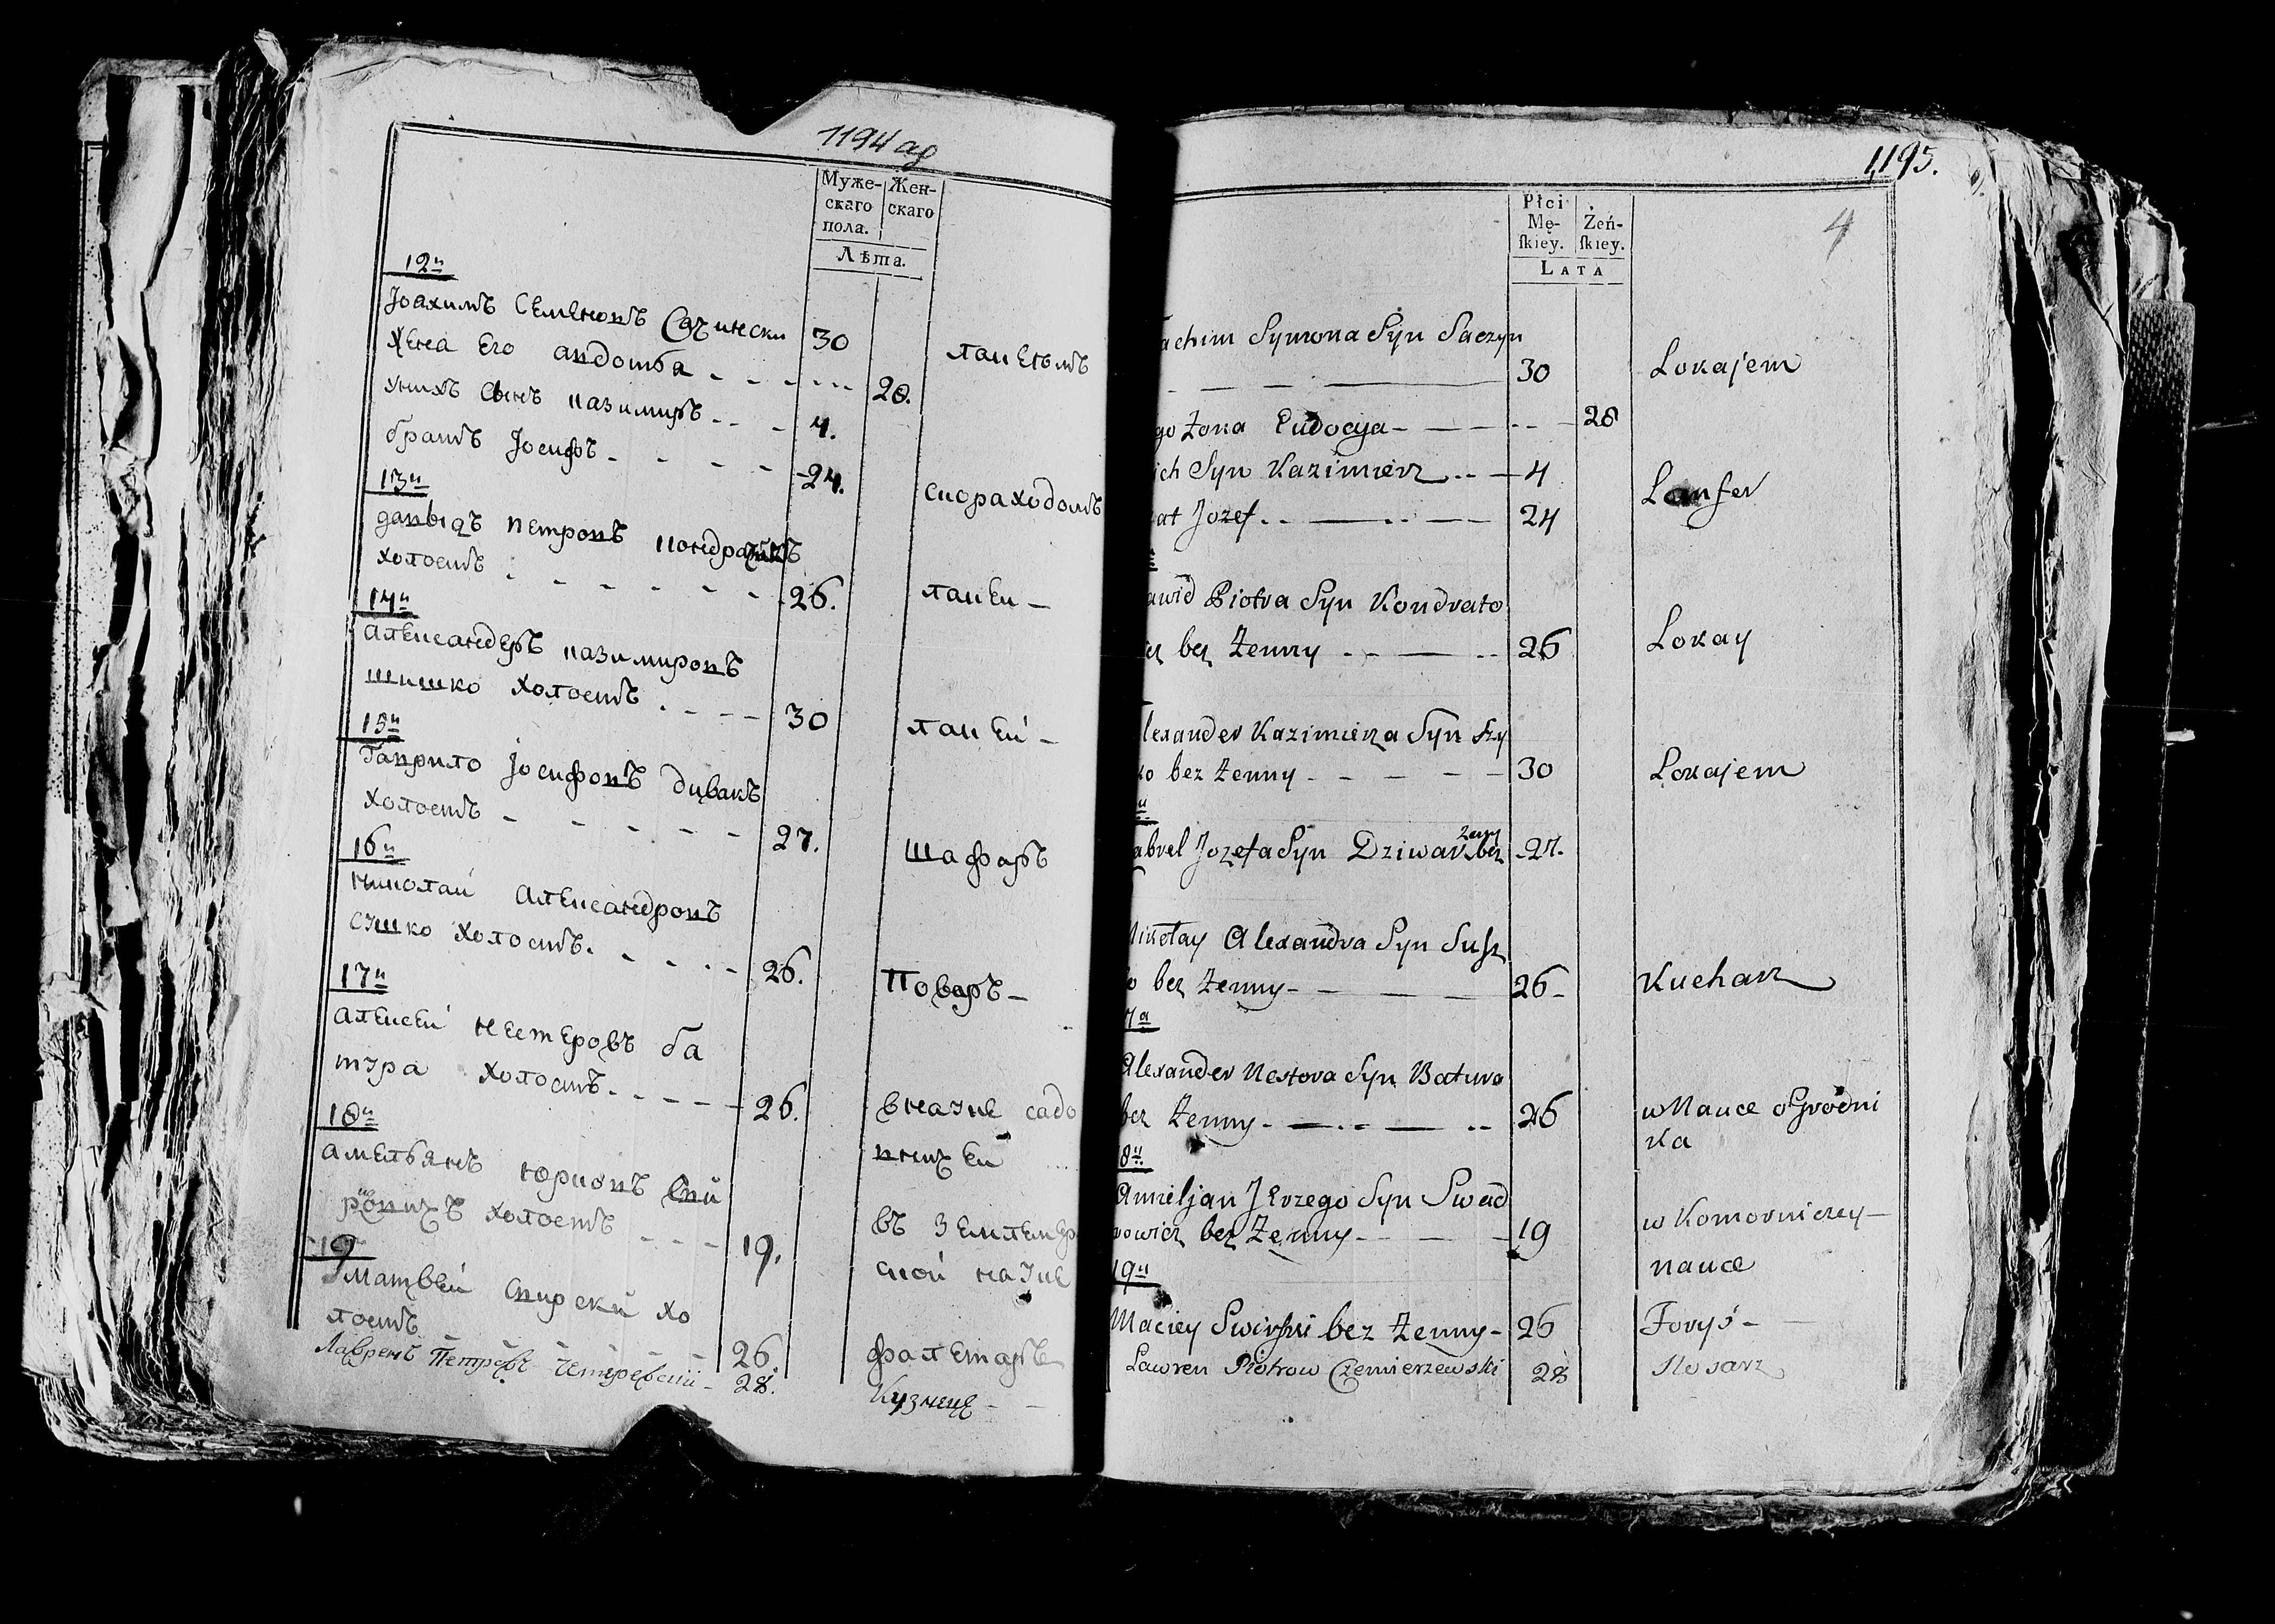 1194 об
Муже- Жен-
скаго скаго
пола.
Лѣта.
12й
Іоахимъ Семеновъ Сачински 30 лакеемъ
жена его авдотья 28.
унихъ сынъ казимиръ 4.
братъ Іосифъ 24. скораходомъ
13й
давыдъ петровъ кондратичъ
холостъ 26. лакеи
14й
александеръ казимировъ
шишко холостъ 30 лакеи
15й
Гаврило Іосифовъ дивакъ
холостъ 27. шафаръ
16й
николаи александровъ
сушко холостъ. 26. Поваръ
17й
алексеи нестеровъ ба
тура холостъ. 26. внауке садо
вничеи
18й
амельянъ юриовъ
холостъ 19. въ землемер
скои науке
19
матвеи свирскии хо
лостъ 26. фалетаръ
Лавренъ Петровъ 28. Кузнецъ
1195.
4
Płci
Mę- Żeń-
ſkiey. ſkiey.
LATA
achim Symona Syn Saczyn
30 Lokajem
go Żona Eudocya 28
ich Syn Kazimierz 4
at Jozef 24 Laufer
awid Piotra Syn Kondrato
cz bez Żenny 26 Lokay
lexander Kazimierza Syn Szy
ko bez żenny 30 Lokajem
abrel Jozefa Syn Dziwak bez żeny 27.
Mikołay Alexandra Syn Susz
o bez Żenny 26 Kucharz
7a
Alexander Nestora Syn Batura
bez Żenny 26 w Nauce oGrodni
ka
8u
Ameljan Jerzego Syn Swid
rowicz bez Żenny 19 w Komorniczey
nauce
19u
Maciey Swirski bez Żenny 26 Foryś
Lawren Piotrow Czemierzewski 28 slosarz